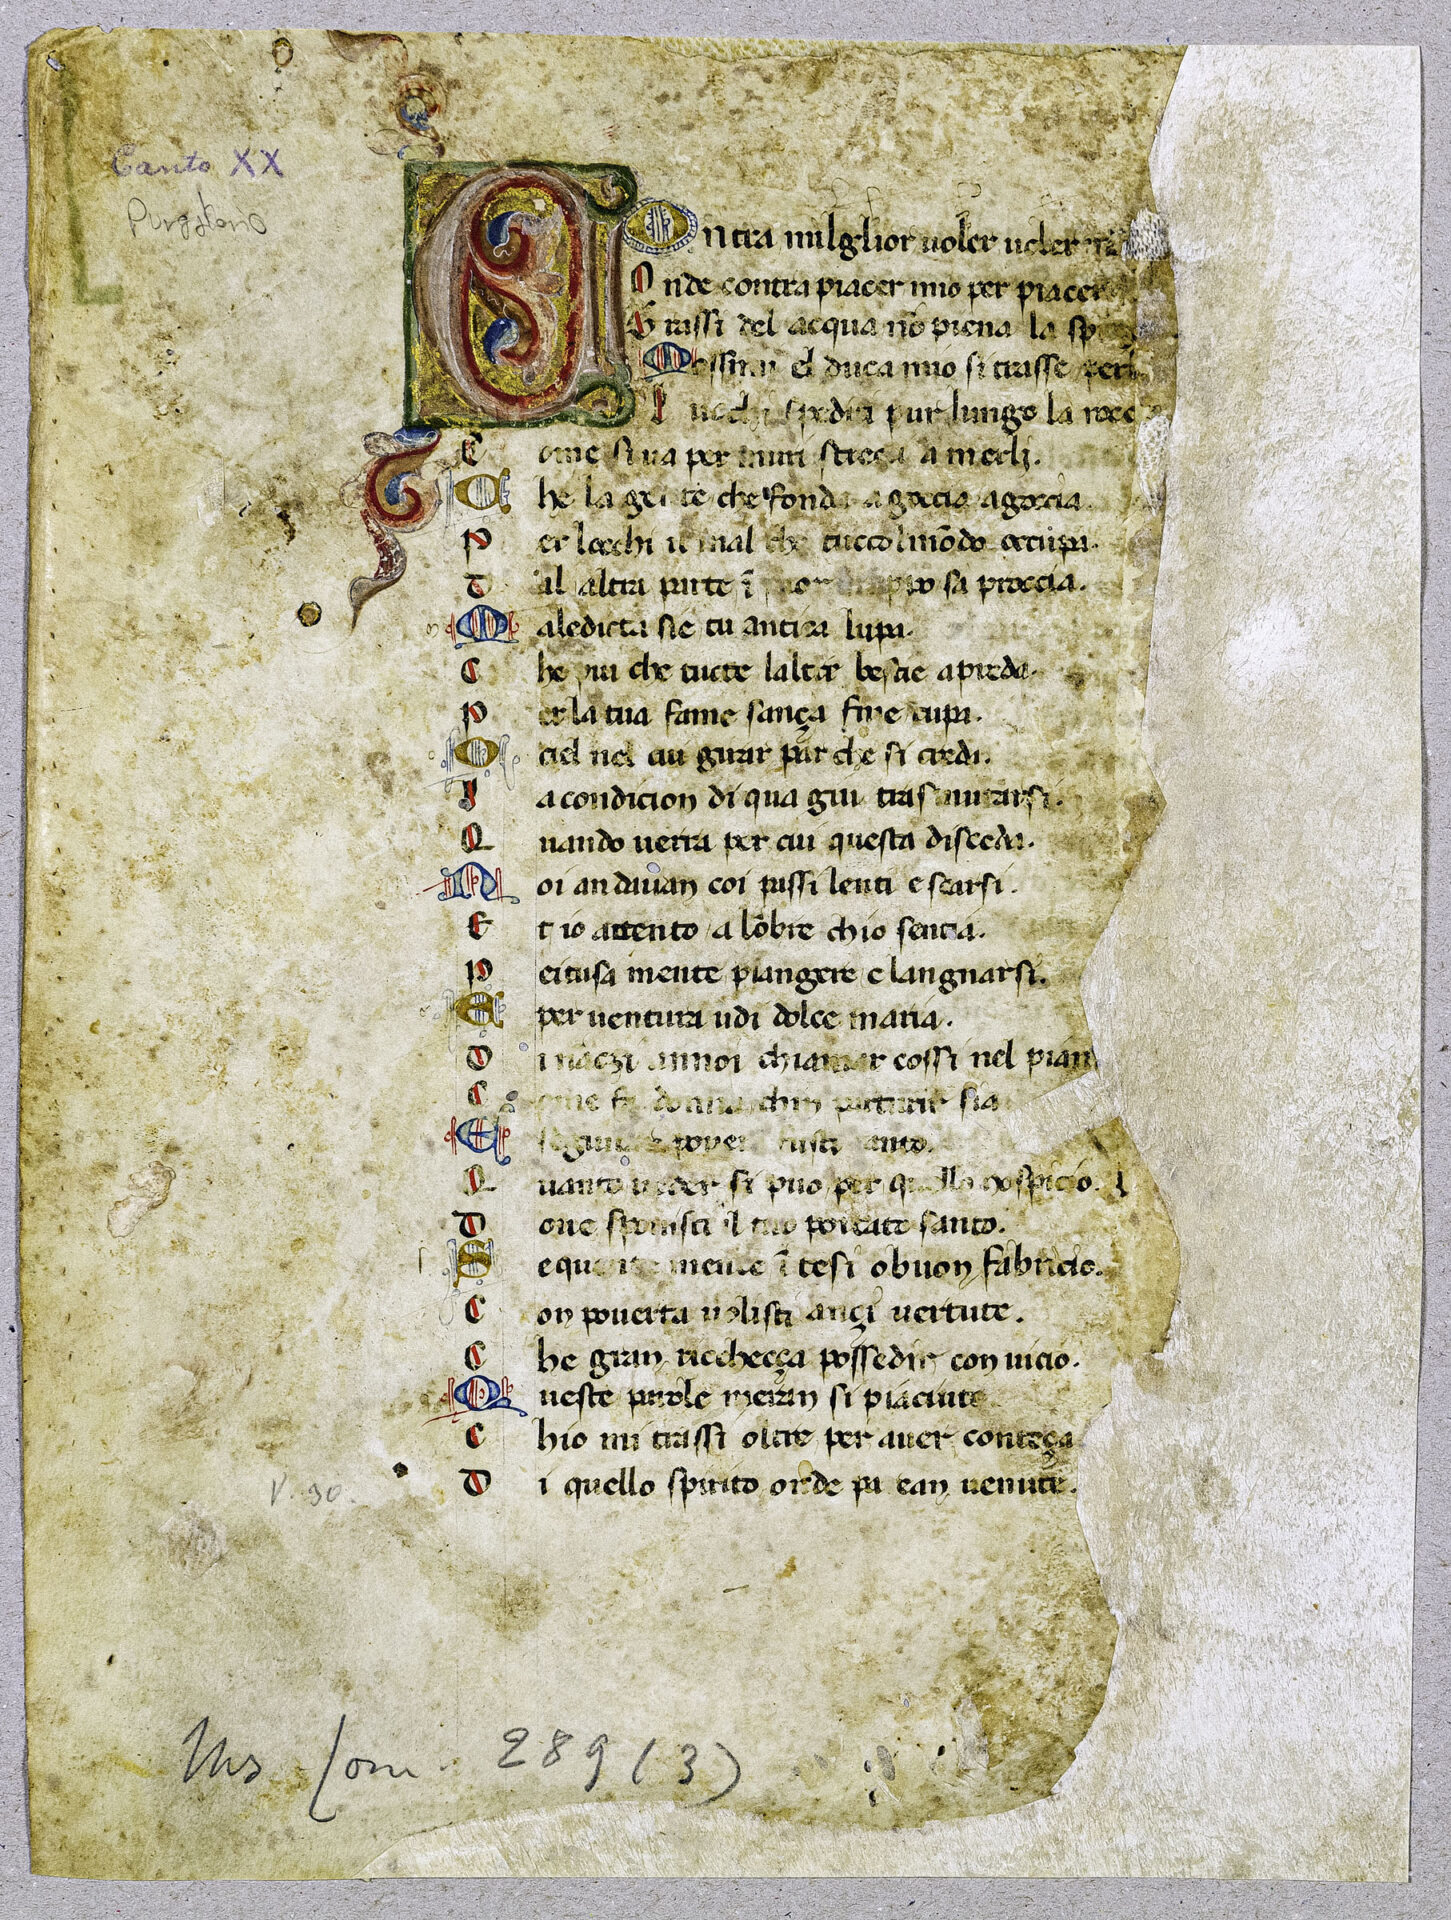 Canto XX
Purgatorio
Contra milglior uoler uoler
Onde contra piacer mio per piacer
Trassi del acqua nō piena la sp
Mossimi el duca mio si trasse per
luochi spediti pur lungo la rocc
Come si ua per muri strecti a merli.
Che la gente che fonde a goccia a goccia
Per locchi il mal che tuccol mōdo occupa.
Dal altra parte ī fuor troppo sa proccia.
Maledicta sie tu anticha lupa.
Che piu che tucte laltre bestie a preda.
Per la tua fame sança fine cupa.
O ciel nel cui girar par che si credi.
La condicion di qua giu trasmutarsi.
Quando uerra per cui questa disceda.
Noi andauan coi passi lenti e scarsi.
Et io attento a lōbre chio sentia.
Peitusa mente piangere e langnarsi.
E per uentura udi dolce maria.
Dināçzi annoi chiamar cossi nel pian
Come fa donna chin parturir sia
E seguir pouer fusti tanto.
Quanto ueder si puo per quello hospicio.
Doue sponisti il tuo portato santo.
Sequentemente ītesi o buon fabricio.
Con pouerta uolisti ançi uertute.
Che gran ricchecça posseder con uicio.
Queste parole meran si piaciute
Chio mi trassi oltre per auer conteça
Di quello spirito onde pa ean uenute.
V. 30.
Ms Ital. 289 (3)